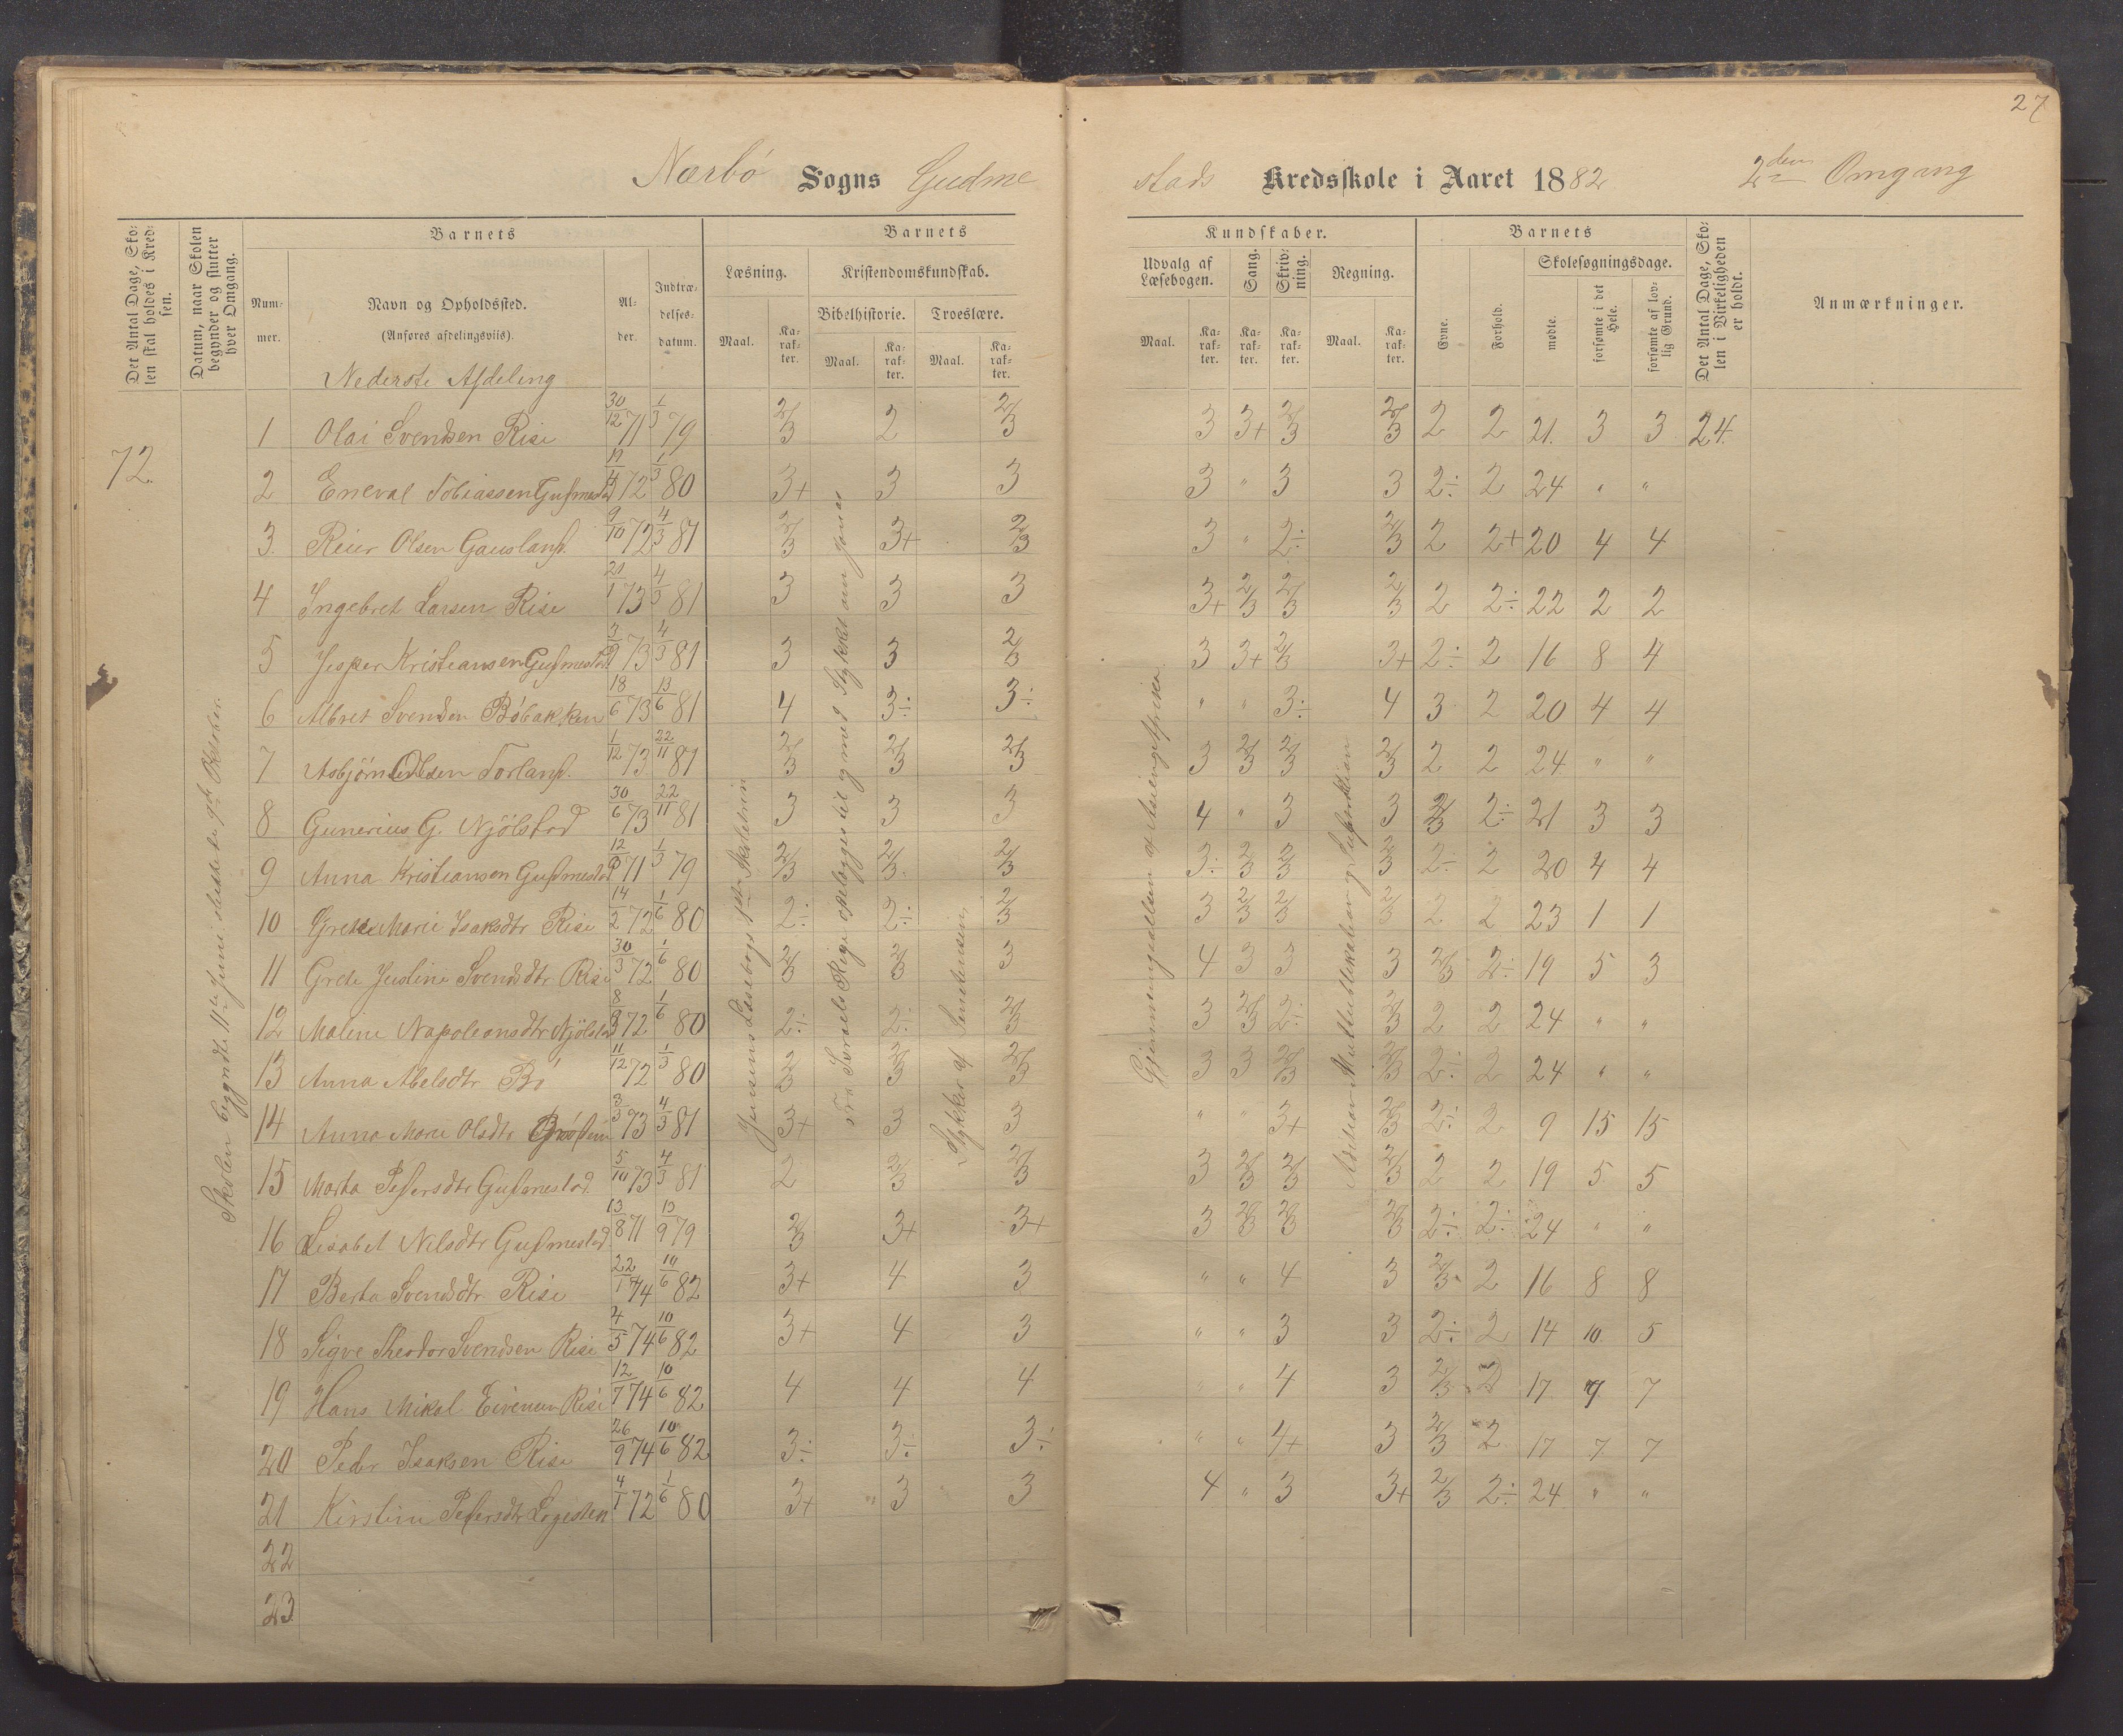 27
Nærbø Sogns Gudmestads Kredsskole i Aaret 1882 2den Omgang
Det Antal Dage, Skolen skal holdes i Kredsen.
Datum, naar Skolen begynder og slutter hver Omgang.
Barnets
Nummer.
Navn og Opholdssted.
(Anføres afdelingsviis).
Alder.
Indtrædelsesdatum.
Barnets Kundskaber.
Læsning.
Maal. Karakter.
Kristendomskundskab.
Bibelhistorie. Troeslære.
Maal. Karakter. Maal. Karakter.
Udvalg af Læsebogen.
Maal. Karakter.
Sang.
Karakter.
Skrivning.
Karakter.
Regning.
Maal. Karakter.
Barnets
Evne.
Forhold.
Skolesøgningsdage.
mødte.
forsømte i det Hele.
forsømte af lovlig Grund.
Det Antal Dage, Skolen i Virkeligheden er holdt.
Anmærkninger.
Nederste Afdeling
72.
Skolen begyndte 11te Juni
1 Olai Svendsen Rise 30/12 71 1/3 79 2/3 2 2/3 3 3+ 2/3 2/3 2 2 21. 3 3 24.
2 Eneval Tobiassen Gudmestad 72 1/3 80 3+ 3 3 3 " 3 3 2÷ 2 24 " "
3. Reier Olsen Gausland. 9/10 72 4/3 81 2/3 3+ 2/3 3 " 2÷ 2/3 2 2+ 20 4 4
4 Ingebret Larsen Rise 21/1 73 4/3 81 3 3 3 3+ 2/3 2/3 2/3 2 2÷ 22 2 2
5 Jesper Kristiansen Gudmestad 73 4/3 81 3 3 2/3 3 3+ 2/3 3+ 2÷ 2 16 8 4
6 Albret Svendsen Bøbakken 18/6 73 13/6 81 4 3÷ 3÷ " " 3÷ 4 3 2 20 4 4
7 Asbjørn Olsen Torland. 1/12 73 22/11 81 2/3 2/3 2/3 3 2/3 2/3 2/3 2 2 24 " "
8 Gunerius G. Njölstad 30/6 73 22/11 81 3 3 3 4 " 3 3 2/3 2÷ 21 3 3
9 Anna Kristiansen Gudmestad 71 1/3 79 2/3 2/3 2/3 3÷ 2/3 2/3 2/3 2÷ 2 20 4 4
10 Grete Marie Isaksdtr Rise 14/2 72 1/6 80 2÷ 2÷ 2/3 3 2/3 2/3 2/3 2 2 23 1 1
11 Grete Justine Svendsdtr Rise 30/3 72 1/6 80 2/3 2/3 3 4 3 3 3 2/3 2÷ 19 5 3
12 Maline Napoleonsdtr Njölstad 72 1/6 80 2÷ 2÷ 2/3 3 2/3 2÷ 2/3 2 2 24 " "
13 Anna Abelsdtr Bø 11/12 72 1/3 80 2/3 2/3 2/3 3 3 2/3 2/3 2÷ 2 24 " "
14 Anna Marie Olsdtr 3/3 73 4/3 81 3+ 3 3 " " 3+ 2/3 2÷ 2 9 15 15
15 Marta Pedersdtr Gudmestad. 5/10 73 4/3 81 2 2/3 2/3 3 2/3 2/3 2/3 2 2 19 5 5
16 Lisabet Nilsdtr Gudmestad. 13/8 71 13/9 79 2/3 3+ 3+ 3 2/3 2/3 2/3 2÷ 2÷ 24 " "
17 Berta Svendsdtr Rise 22/1 74 10/6 82 3+ 4 3 " " 4 3 2/3 2 16 8 8
18 Sigve Theodor Svendsen Rise 4/5 74 10/6 82 3+ 4 3 " " 3 3 2÷ 2 14 10 5
19 Hans Mikal Rise 12/7 74 10/6 82 4 4 4 " " 4 3 2/3 2 17 7 7
20 Peder Isaksen Rise 26/9 74 10/6 82 3÷ 3÷ 3÷ " " 4+ 3 2/3 2 17 7 7
21 Kirstine Pedersdtr 4/1 72 1/6 80 3+ " 3 " 3 4 " 3 3+ 2/3 2÷ 24 " "
22
23
Jensens Læsebogs 1ste Skoletrin
Fra Israels Rige opløsges til og med Stykket om Jonas
Stykker af
Gjennemgaaelsen af
Addition, Multiplikation og Subtraktion